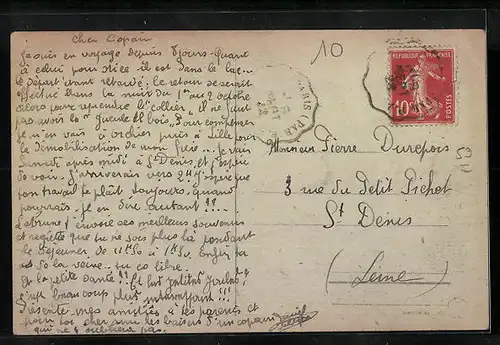 Cher Copain
Je suis en voyage depuis 8 jours. Quant
à celui pour Nice il est dans le lac...
le départ étant retardé. le retour se serait
effectué dans la nuit du 1er au 2 octobre
alors pour reprendre l'"collier" il ne faut
pas avoir la "gueule de bois". Pour compenser
je m'en vais à Orchies près Lille voir
la démobilisation de mon frère... je vais
samedi après midi à St Denis, et j'espère
te voir. J'arriverais vers 2H j'espère que
ton travail te plait toujours, quand
pourrais je en dire autant!!...
envoie ses meilleurs souvenirs
et regrette que tu ne sois plus là pendant
le déjeuner de 11H30 à 1H30. Enfin
de la veine... tu es libre.
Et la petite santé?? Et les petites
S'est beaucoup plus intéressant!!!
Présente mes amitiés à tes parents et
pour toi cher ami les baisers d'un copain
qui ne t'oubliera pas.
10
PARIS
REPUBLIQUE FRANÇAISE
10c
POSTES
Monsieur Pierre Durepois
3 rue du Petit Pichet
St Denis
(Seine)